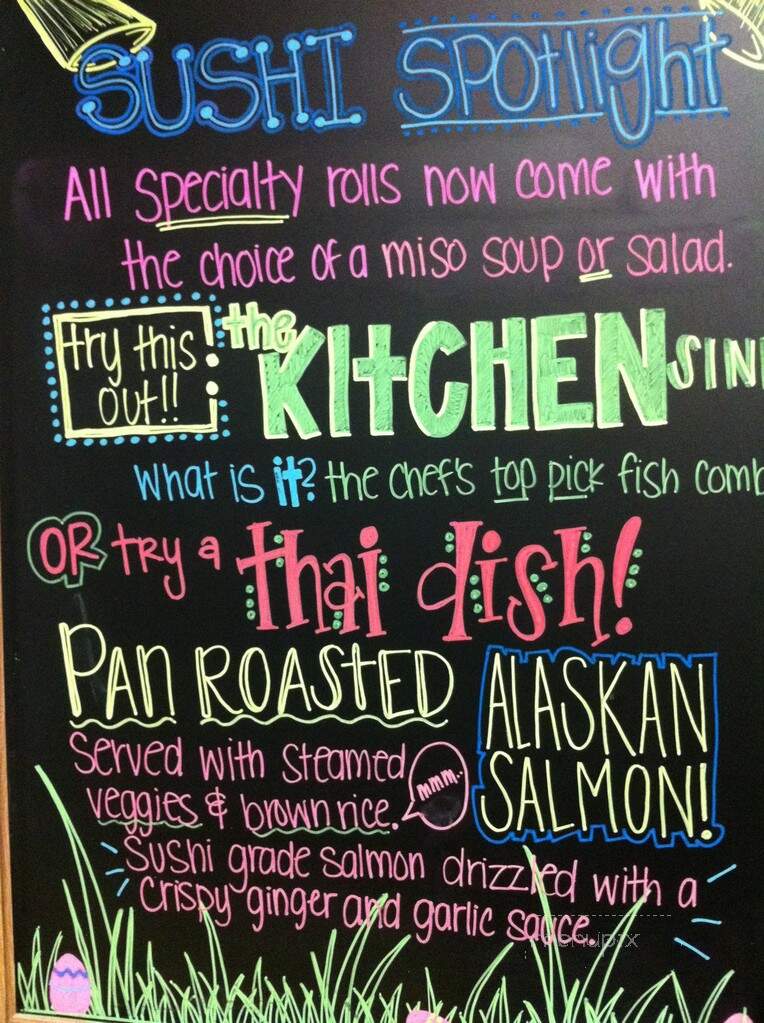 SUSHI SPOtlight
All specialty rolls now come with
the choice of a miso soup or salad.
try this out!! : the KItCHEN SIN
What is it? the chef's top pick fish comb
OR try a thai dish!
PAN ROAStED
ALASKAN
SALMON!
Served with steamed
veggies & brown rice.
mmm..
Sushi grade salmon drizzled with a
crispy ginger and garlic sauce.
menupix